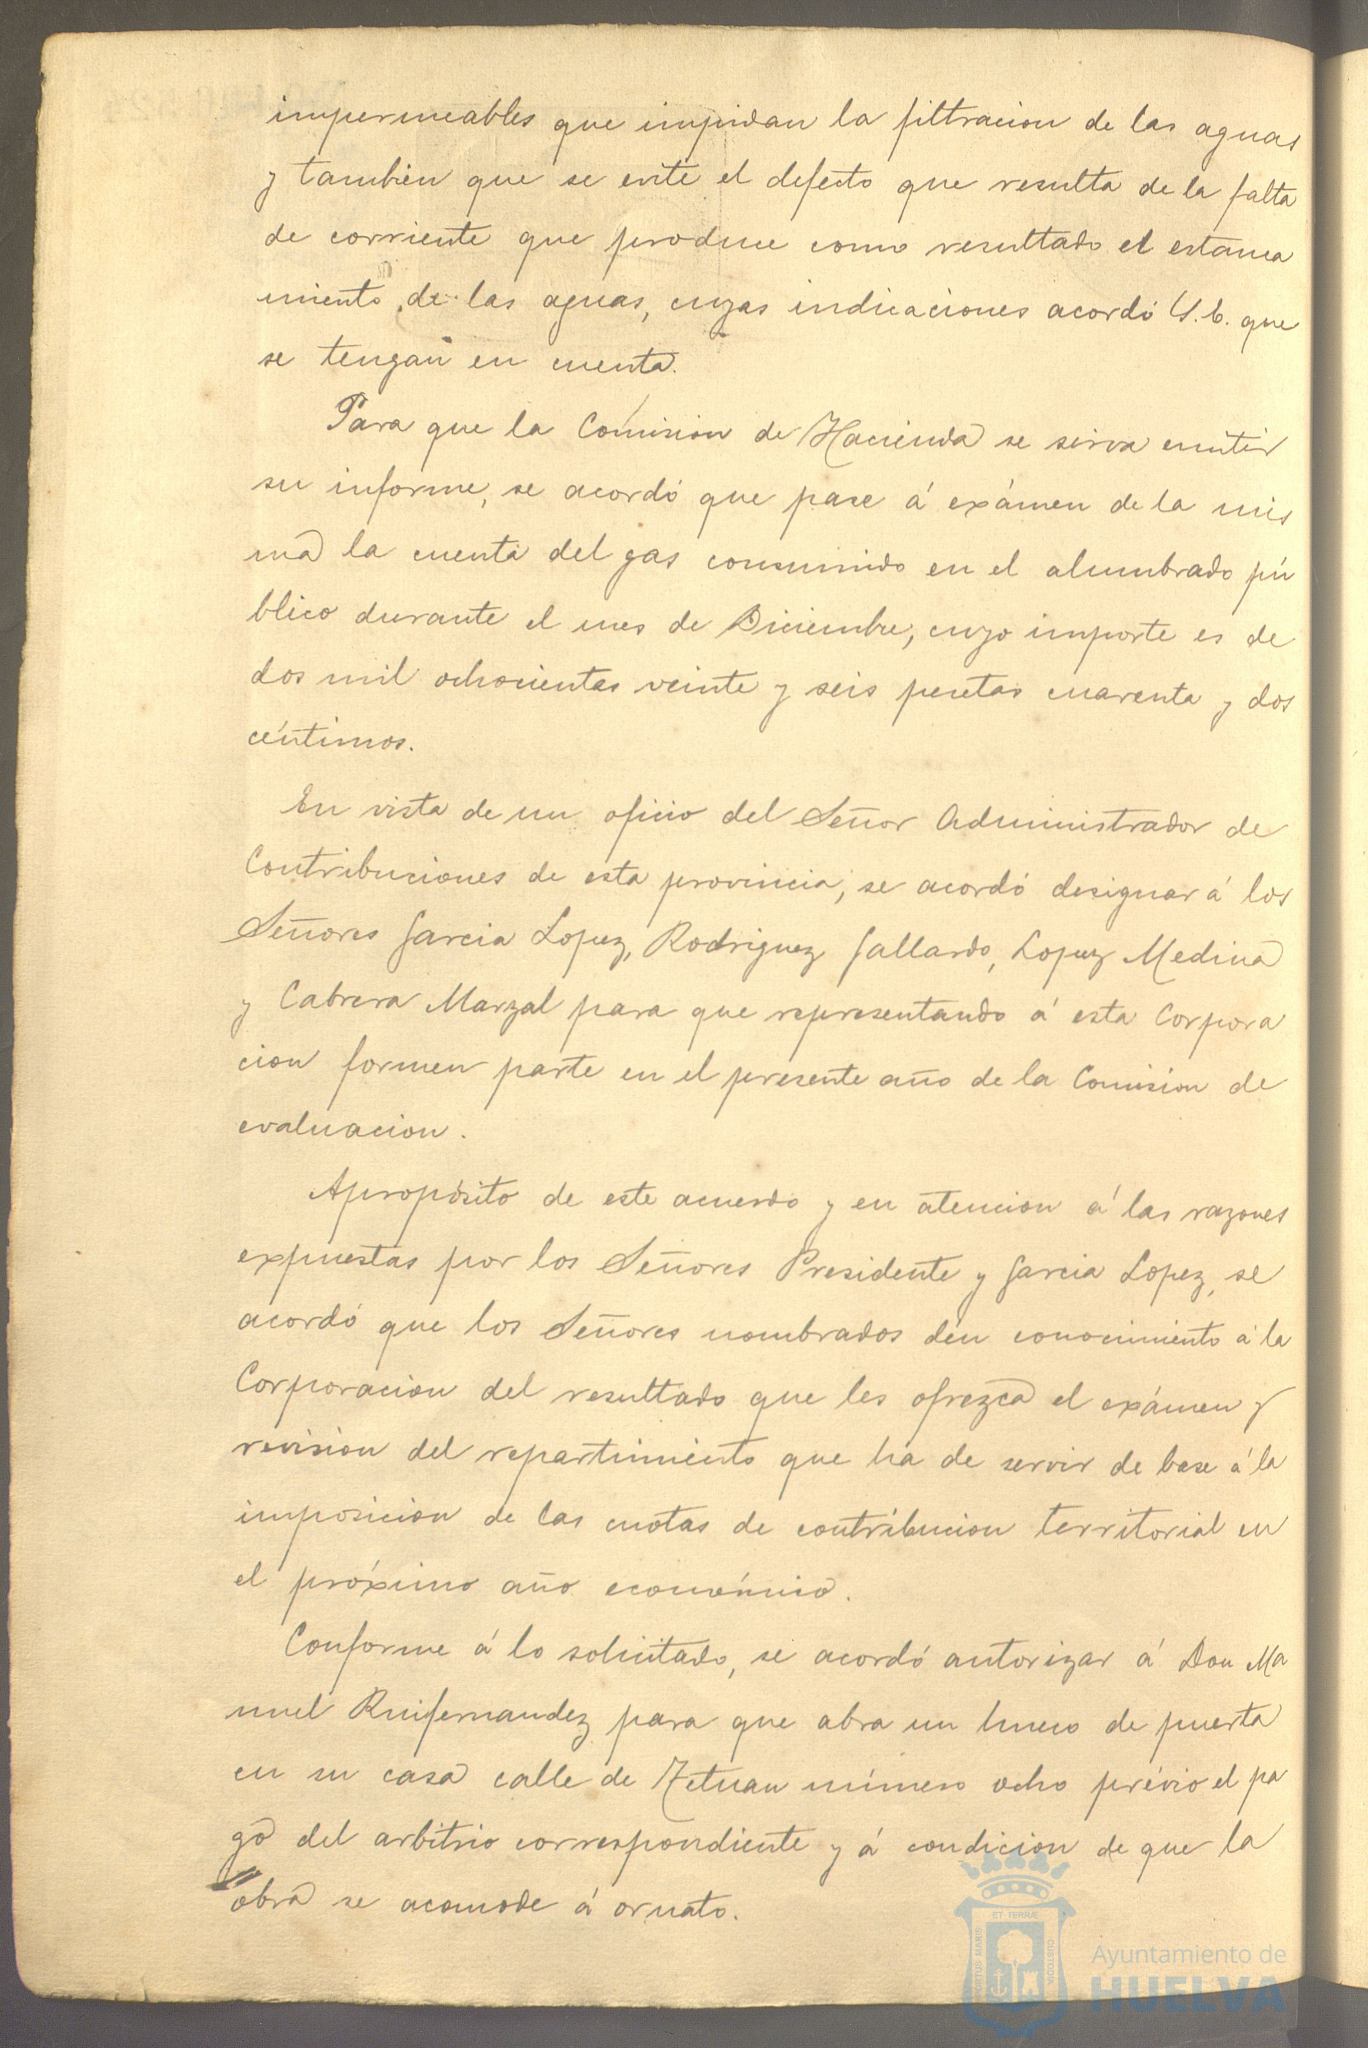 impermeables que impidan la filtracion de las aguas
y tambien que se evite el defecto que resulta de la falta
de corriente que produce como resultado el estanca
miento de las aguas, cuyas indicaciones acordó S.E. que
se tengan en cuenta.
Para que la Comision de Hacienda se sirva emitir
su informe, se acordó que pase á exámen de la mis
ma la cuenta del gas consumido en el alumbrado pú
blico durante el mes de Diciembre, cuyo importe es de
dos mil ochocientas veinte y seis pesetas cuarenta y dos
céntimos.
En vista de un oficio del Señor Administrador de
Contribuciones de esta provincia, se acordó designar á los
Señores Garcia Lopez, Rodriguez Gallardo, Lopez Medina
y Cabrera Marzal para que representando á esta Corpora
cion formen parte en el presente año de la Comision de
evaluacion.
Apropósito de este acuerdo y en atencion á las razones
expuestas por los Señores Presidente y Garcia Lopez, se
acordó que los Señores nombrados den conocimiento á la
Corporacion del resultado que les ofrezca el exámen y
revision del repartimiento que ha de servir de base á la
imposicion de las cuotas de contribucion territorial en
el próximo año económico.
Conforme á lo solicitado, se acordó autorizar á Don Ma
nuel Ruifernandez para que abra un hueco de puerta
en su casa calle de Tetuan número ocho prévio el pa
go del arbitrio correspondiente y á condicion de que la
obra se acomode á ornato.
PORTUS MARIS
ET TERRÆ
CUSTODIA
Ayuntamiento de
HUELVA